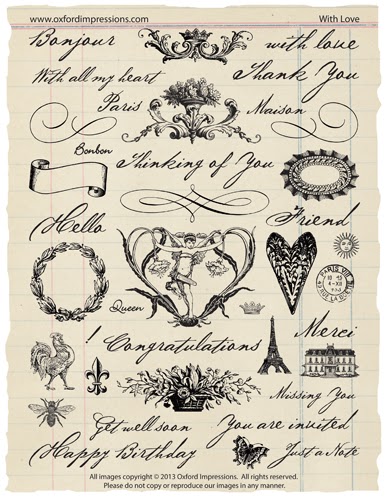 www.oxfordimpressions.com With Love
Bonjour with love
With all my heart Thank You
Paris Maison
Bonbon
Thinking of You
Hello Friend
Queen
! Congratulations Merci
Missing You
Get well soon You are invited
Happy Birthday Just a Note
All images copyright © 2013 Oxford Impressions. All rights reserved.
Please do not copy or reproduce our images in any manner.